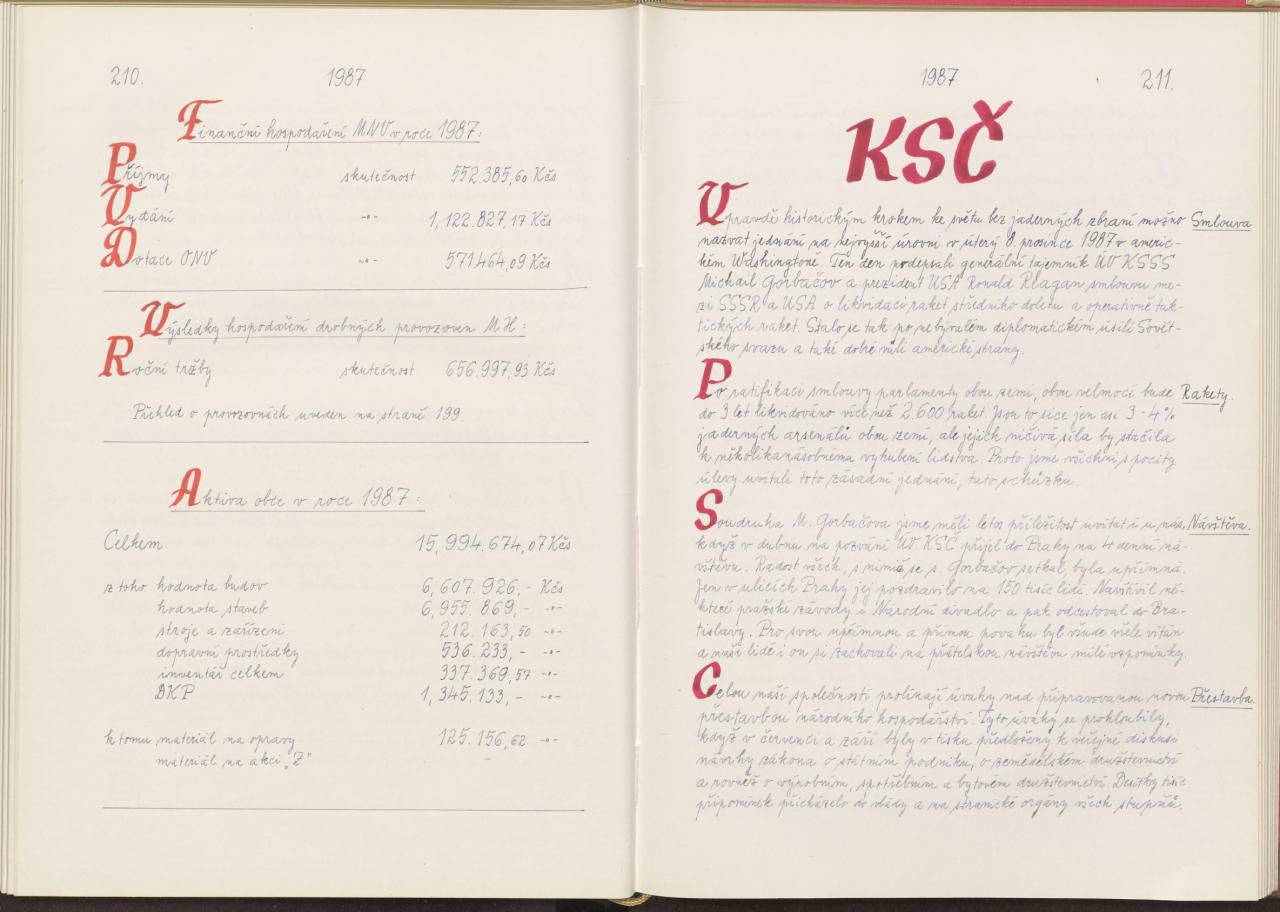 210. 1987
Finanční hospodaření MNV v roce 1987:
Příjmy skutečnost 552.385,60 Kčs
Vydání -"- 1,122.827,17 Kčs
Dotace ONV -"- 571.464,09 Kčs
Výsledky hospodaření drobných provozoven MH:
Roční tržby skutečnost 656.997,93 Kčs
Přehled o provozovnách uveden na straně 199.
Aktiva obce v roce 1987:
Celkem 15,994.674,07 Kčs
z toho hodnota budov 6,607.926,- Kčs
hodnota staveb 6,955.869,- -"-
stroje a zařízení 212.163,50 -"-
dopravní prostředky 536.233,- -"-
inventář celkem 337.369,57 -"-
DKP 1,345.133,- -"-
k tomu materiál na opravy 125.156,62 -"-
materiál na akci „Z" -
1987 211.
KSČ
Vpravdě historickým krokem ke světu bez jaderných zbraní možno Smlouva
nazvat jednání na nejvyšší úrovni v úterý 8. prosince 1987 v americ-
kém Washingtoně. Ten den podepsali generální tajemník ÚV KSSS
Michail Gorbačov a prezident USA Ronald Reagan smlouvu me-
zi SSSR a USA o likvidaci raket středního doletu a operativně tak-
tických raket. Stalo se tak po nebývalém diplomatickém úsilí Sovět-
ského svazu a také dobré vůli americké strany.
Po ratifikaci smlouvy parlamenty obou zemí, obou velmocí bude Rakety.
do 3 let likvidováno více než 2.600 raket. Jsou to sice jen asi 3-4%
jaderných arsenálů obou zemí, ale jejich ničivá síla by stačila
k několikanásobnému vyhubení lidstva. Proto jsme všichni s pocity
úlevy uvítali toto zásadní jednání, tuto schůzku.
Soudruha M. Gorbačova jsme měli letos příležitost uvítat i u nás, Návštěva.
když v dubnu na pozvání ÚV KSČ přijel do Prahy na 4 denní ná-
vštěvu. Radost všech, s nimiž se s. Gorbačov setkal, byla upřímná.
Jen v ulicích Prahy jej pozdravilo na 150 tisíc lidí. Navštívil ně-
které pražské závody i Národní divadlo a pak odcestoval do Bra-
tislavy. Pro svou upřímnou a přímou povahu byl všude vřele vítán
a naši lidé i on si zachovali na přátelskou návštěvu milé vzpomínky.
Celou naší společností prolínají úvahy nad připravovanou novou Přestavba.
přestavbou národního hospodářství. Tyto úvahy se prohloubily,
když v červenci a září byly v tisku předloženy k veřejné diskusi
návrhy zákona o státním podniku, o zemědělském družstevnictví
a rovněž o výrobním, spotřebním a bytovém družstevnictví. Desítky tisíc
připomínek přicházelo do vlády a na stranické orgány všech stupňů.